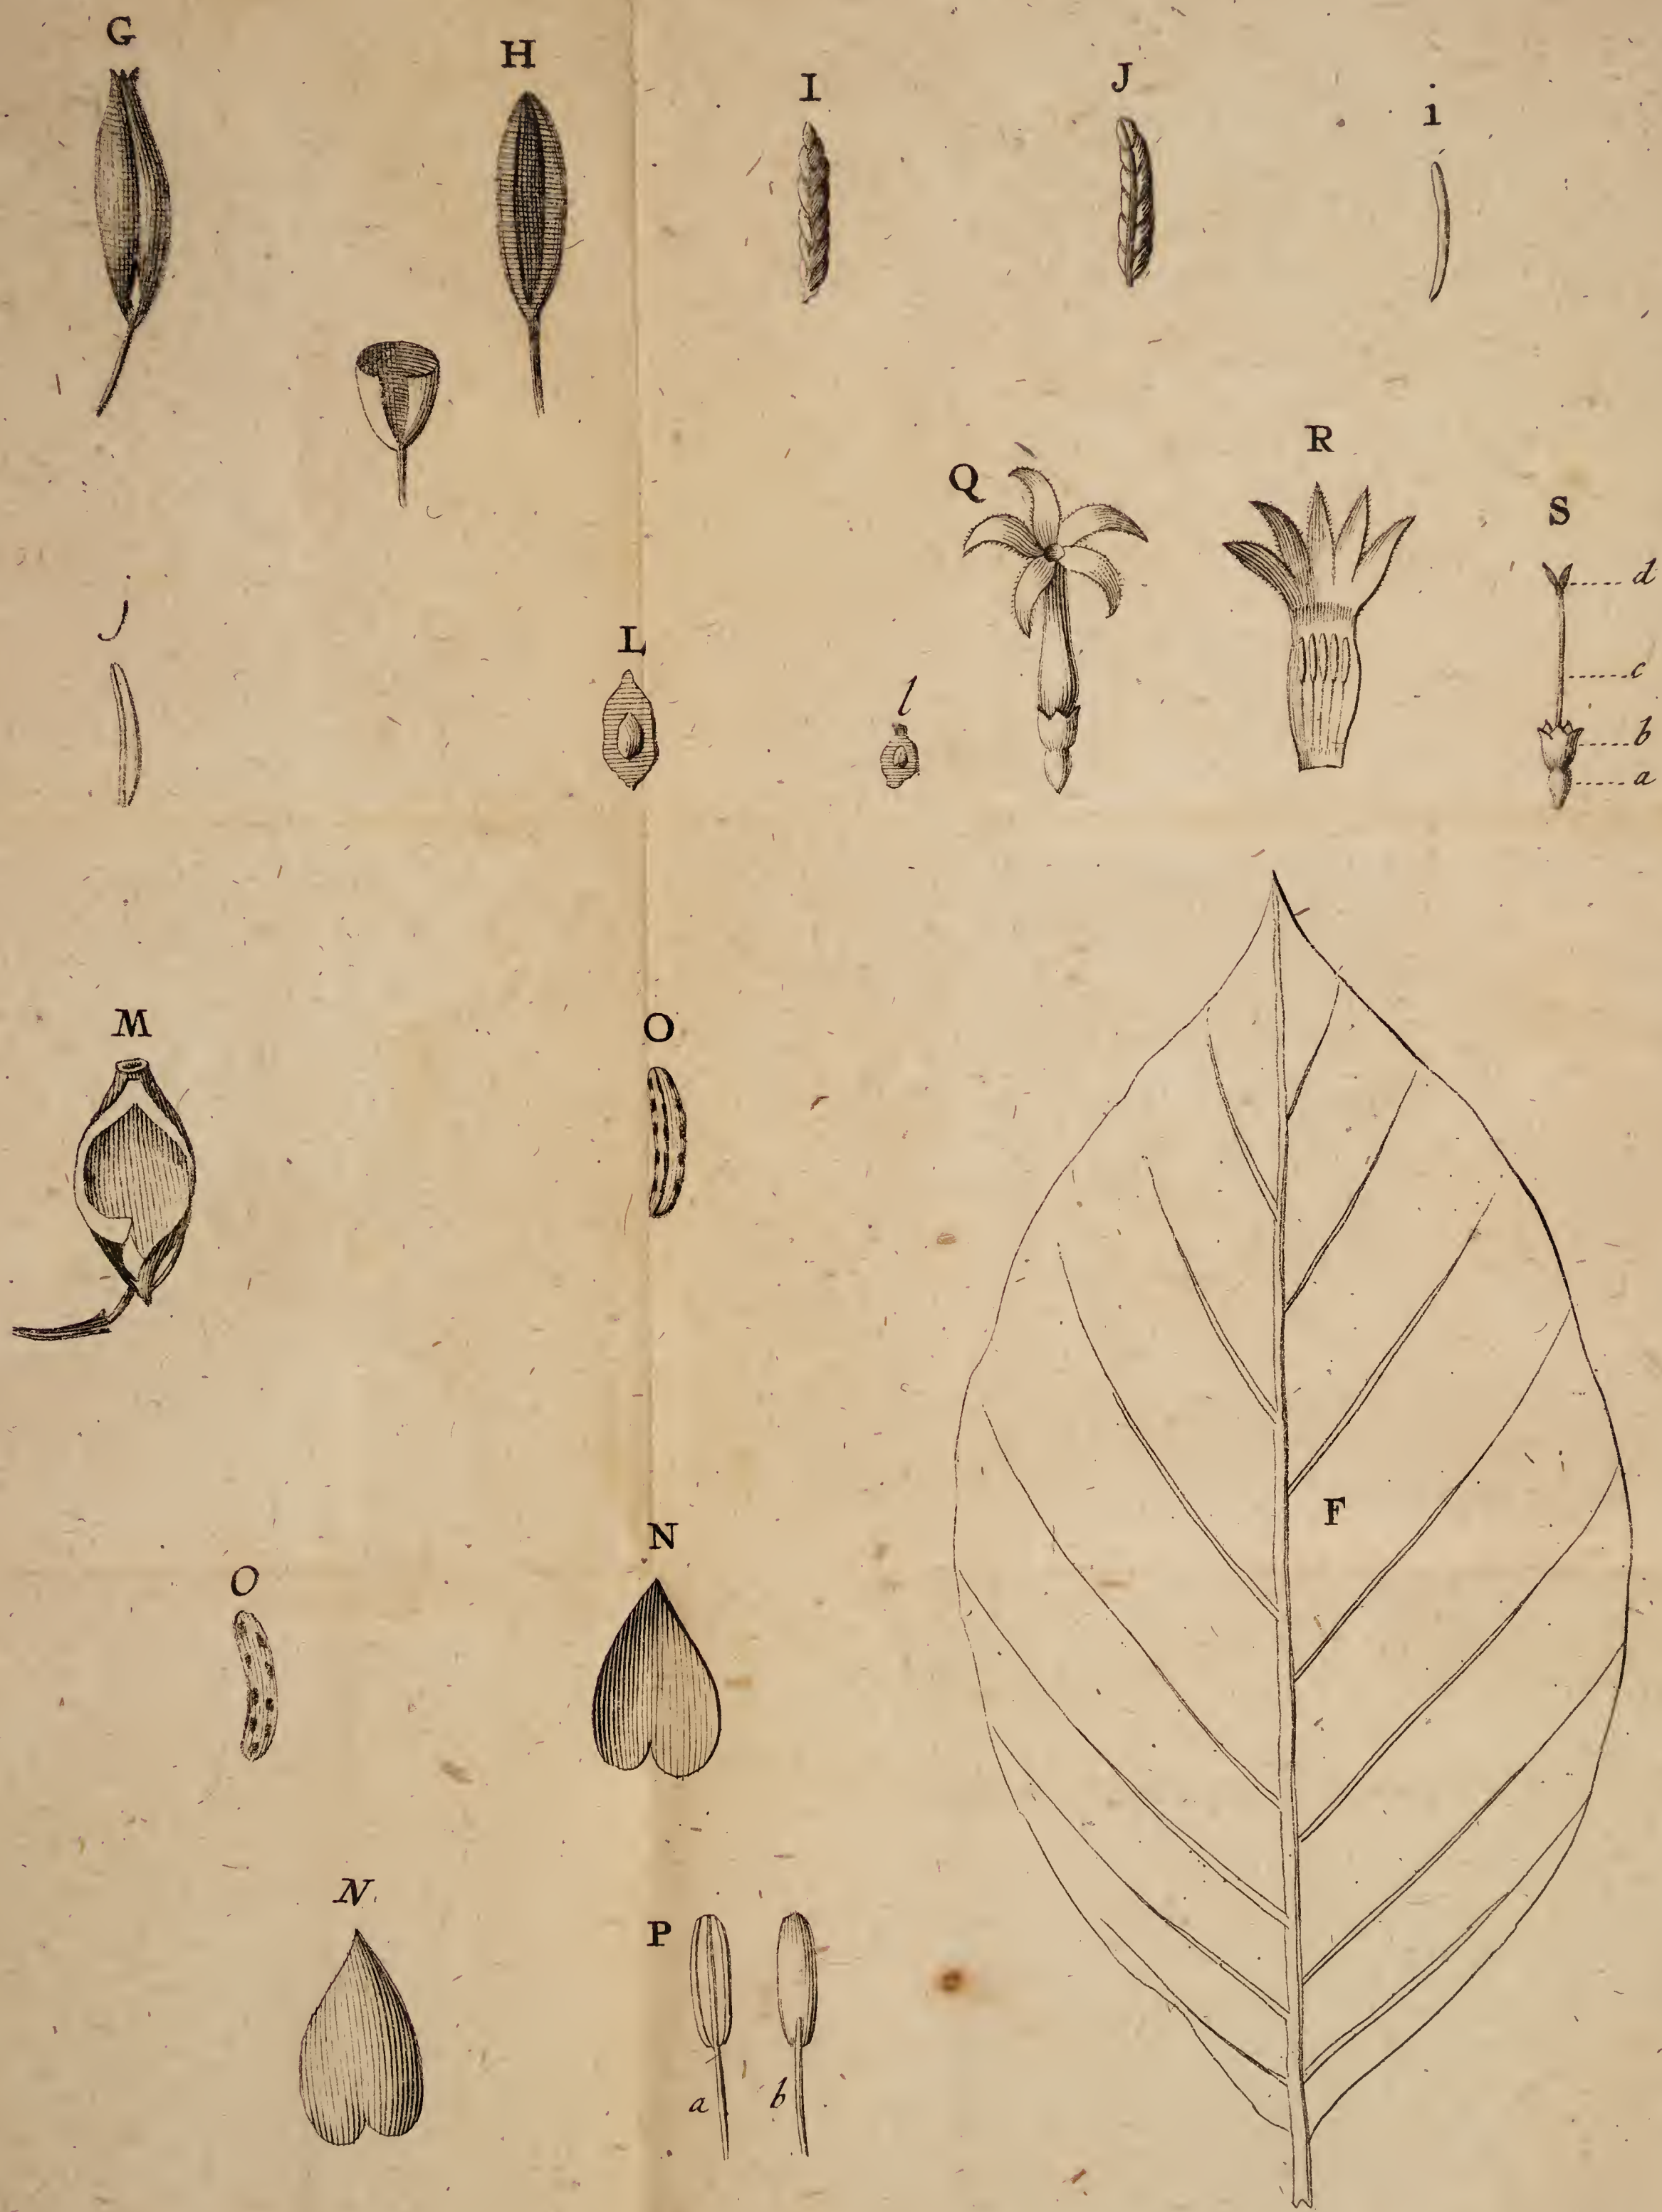 G
H
I
J
i
Q
R
S
d
c
b
a
j
L
l
M
O
F
N
O
N
P
a
b